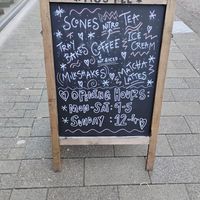 SCONES NITRO TEA
TRAY BAKES COFFEE ICE CREAM
MILKSHAKES MATCHA LATTES
OPENING HOURS:
MON-SAT: 9-5
SUNDAY: 12-4